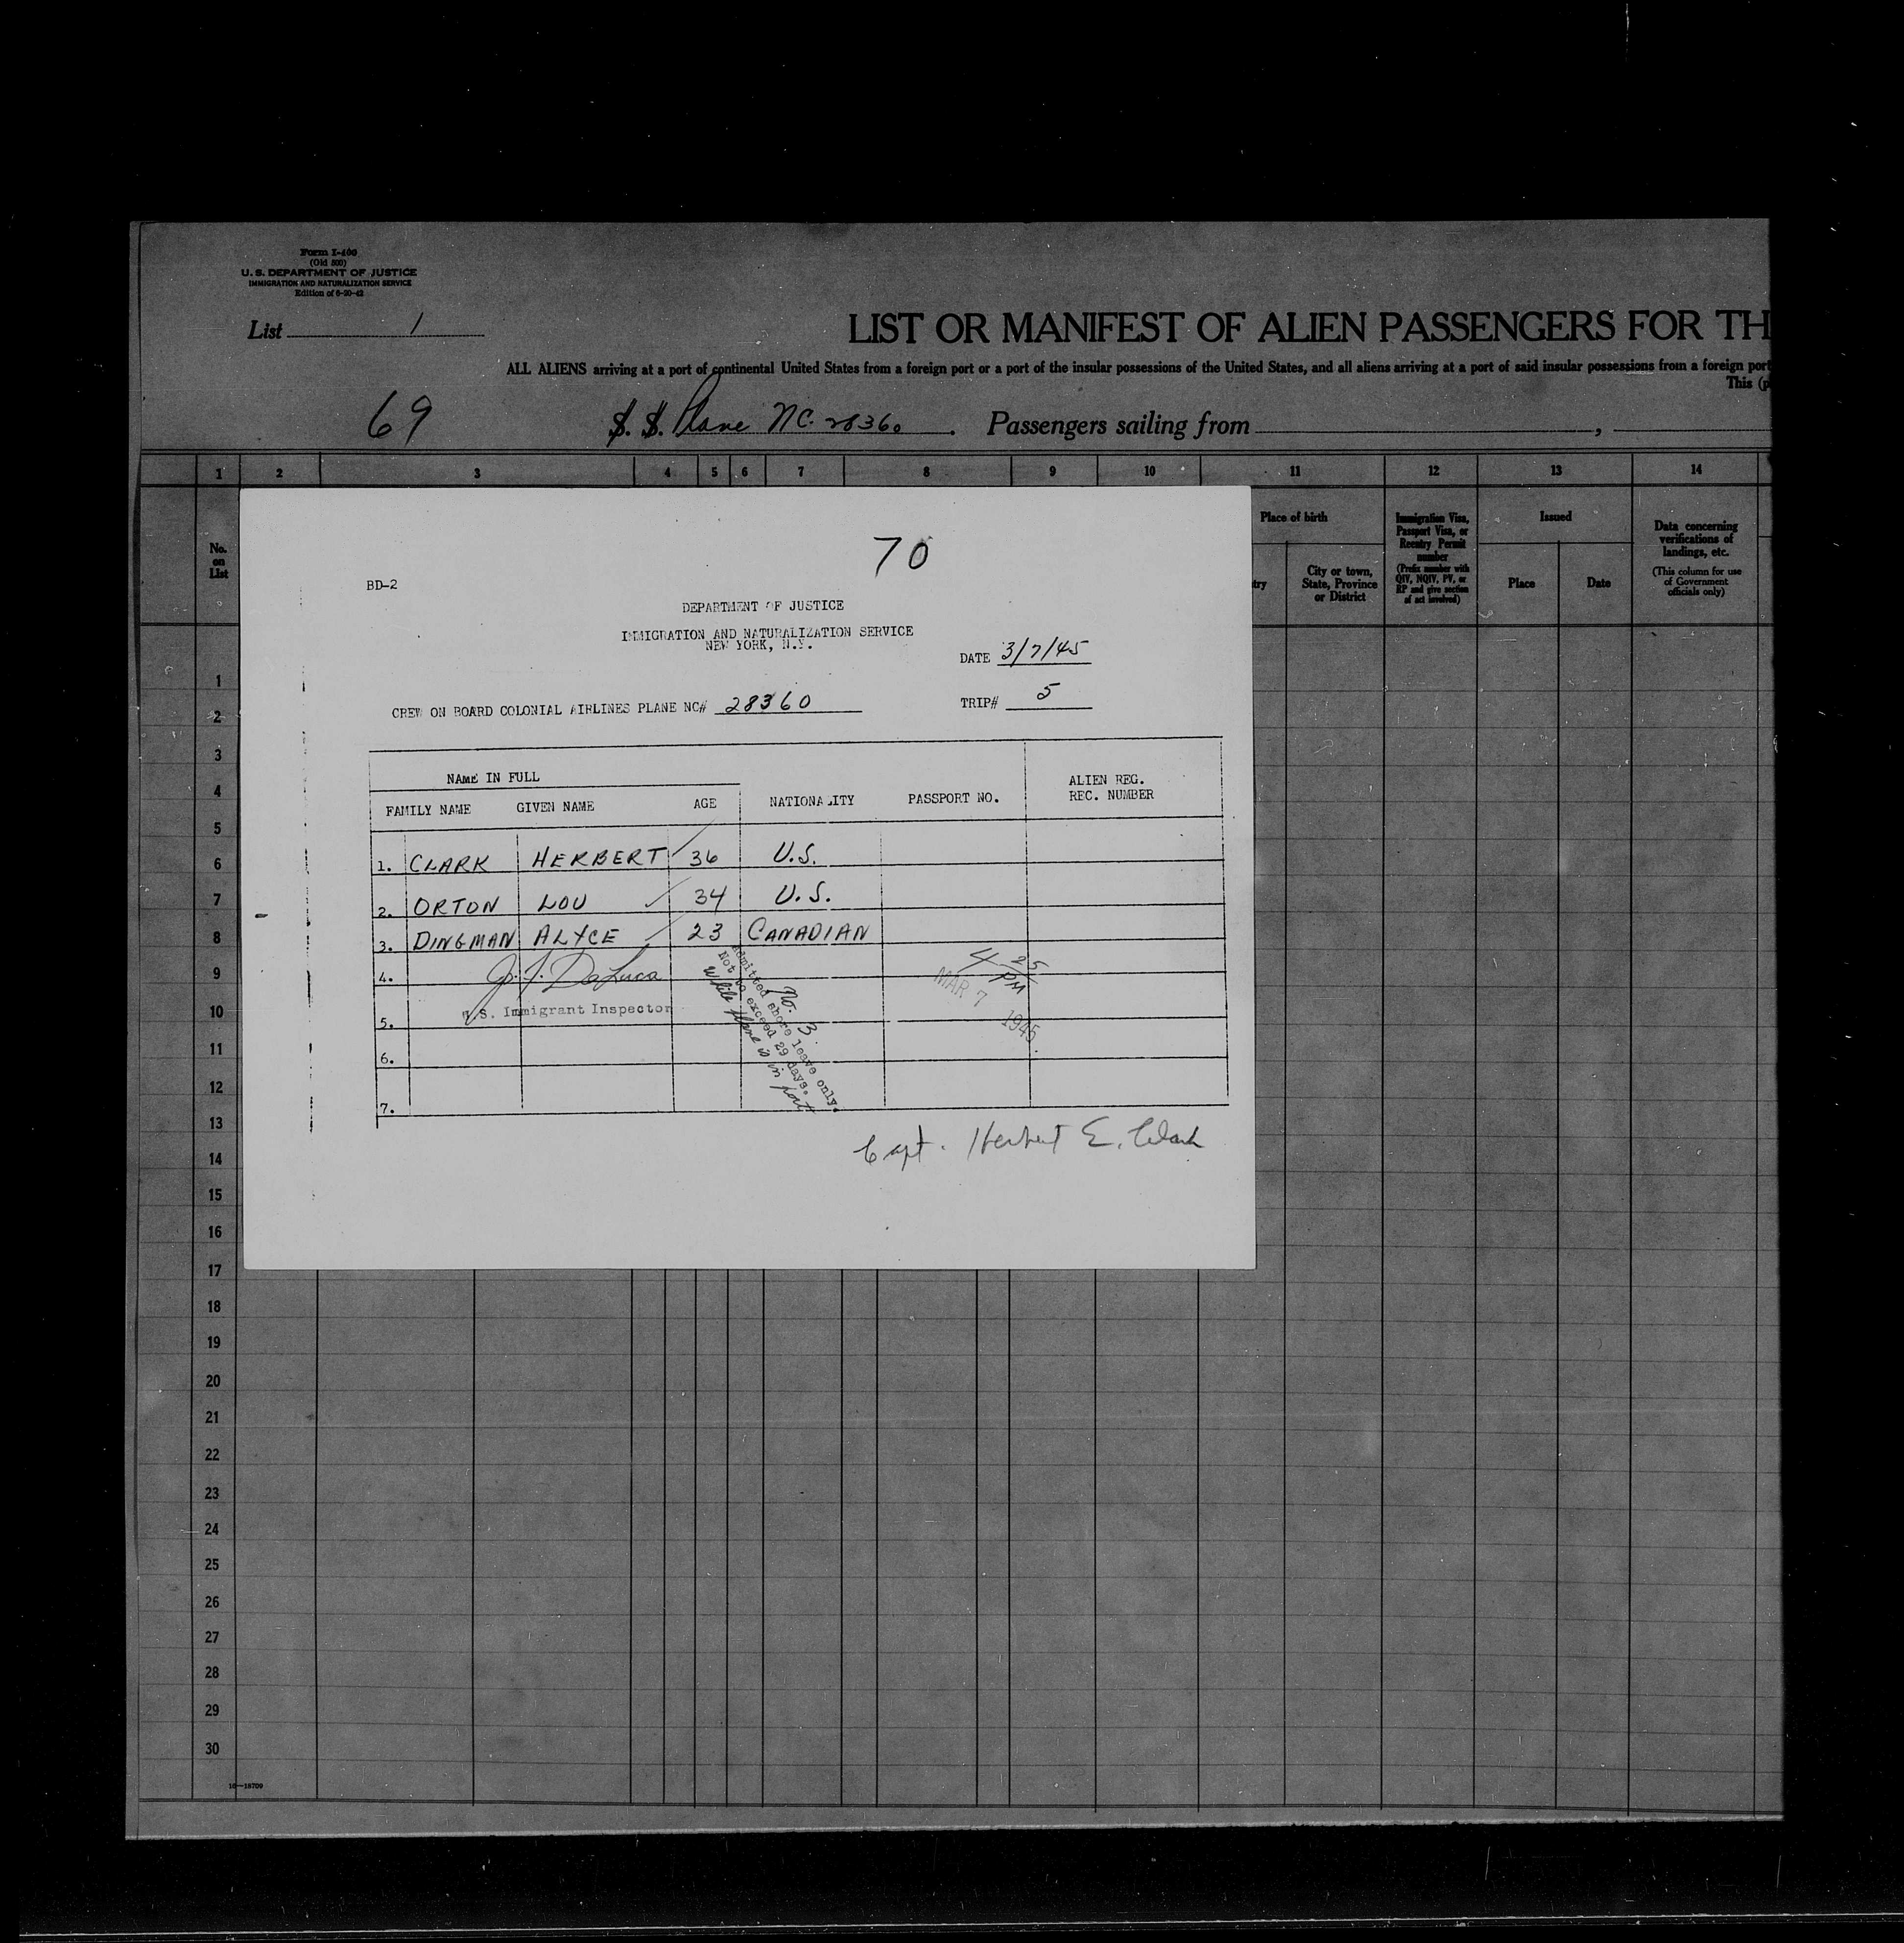 Form I-400
(Old 500)
U. S. DEPARTMENT OF JUSTICE
IMMIGRATION AND NATURALIZATION SERVICE
Edition of 6-20-42
List 1
LIST OR MANIFEST OF ALIEN PASSENGERS FOR TH
ALL ALIENS arriving at a port of continental United States from a foreign port or a port of the insular possessions of the United States, and all aliens arriving at a port of said insular possessions from a foreign port
This (p
69 S. S. Plane NC. 28360. Passengers sailing from ,
1 2 3 4 5 6 7 8 9 10 11 12 13 14
No. on List
Place of birth
try
City or town, State, Province or District
Immigration Visa, Passport Visa, or Reentry Permit number
(Prefix number with QIV, NQIV, PV, or RP and give section of act involved)
Issued
Place Date
Data concerning verifications of landings, etc.
(This column for use of Government officials only)
70
BD-2
DEPARTMENT OF JUSTICE
IMMIGRATION AND NATURALIZATION SERVICE
NEW YORK, N.Y.
DATE 3/7/45
CREW ON BOARD COLONIAL AIRLINES PLANE NC# 28360 TRIP# 5
NAME IN FULL
FAMILY NAME GIVEN NAME AGE NATIONALITY PASSPORT NO. ALIEN REG. REC. NUMBER
1. CLARK HERBERT 36 U.S.
2. ORTON LOU 34 U.S.
3. DINGMAN ALYCE 23 CANADIAN
4. J. J. DeLuca
5. U.S. Immigrant Inspector
6.
7.
No. 3
Admitted shore leave only.
Not to exceed 29 days.
while plane is in port
4 25 PM
MAR 7 1945
Capt. Herbert E. Clark
1
2
3
4
5
6
7
8
9
10
11
12
13
14
15
16
17
18
19
20
21
22
23
24
25
26
27
28
29
30
16—18709